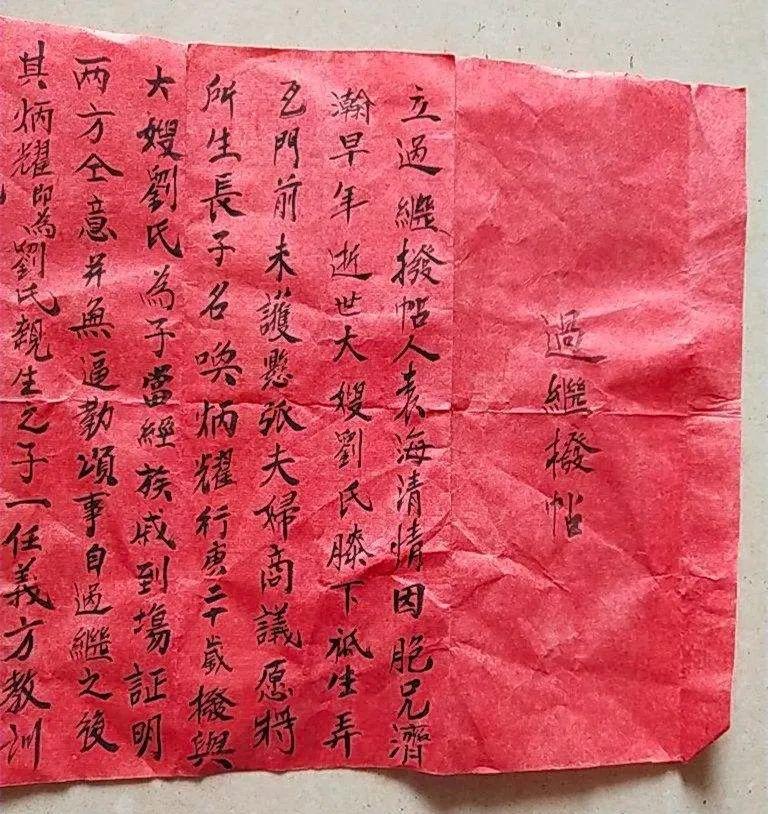 過繼撥帖
立過繼撥帖人袁海清情因胞兄濟
瀚早年逝世大嫂劉氏膝下祗生弄
瓦門前未護懸弧夫婦商議愿將
所生長子名喚炳耀行庚二十歲撥與
大嫂劉氏為子當經族戚到塲証明
两方仝意并無逼勒順事自過繼之後
其炳耀即為劉氏親生之子一任義方教训